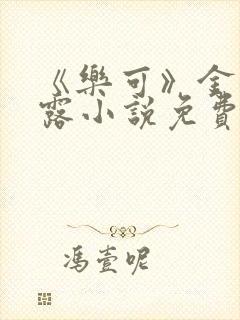 《樂可》金
露小說免費
馮壹呢